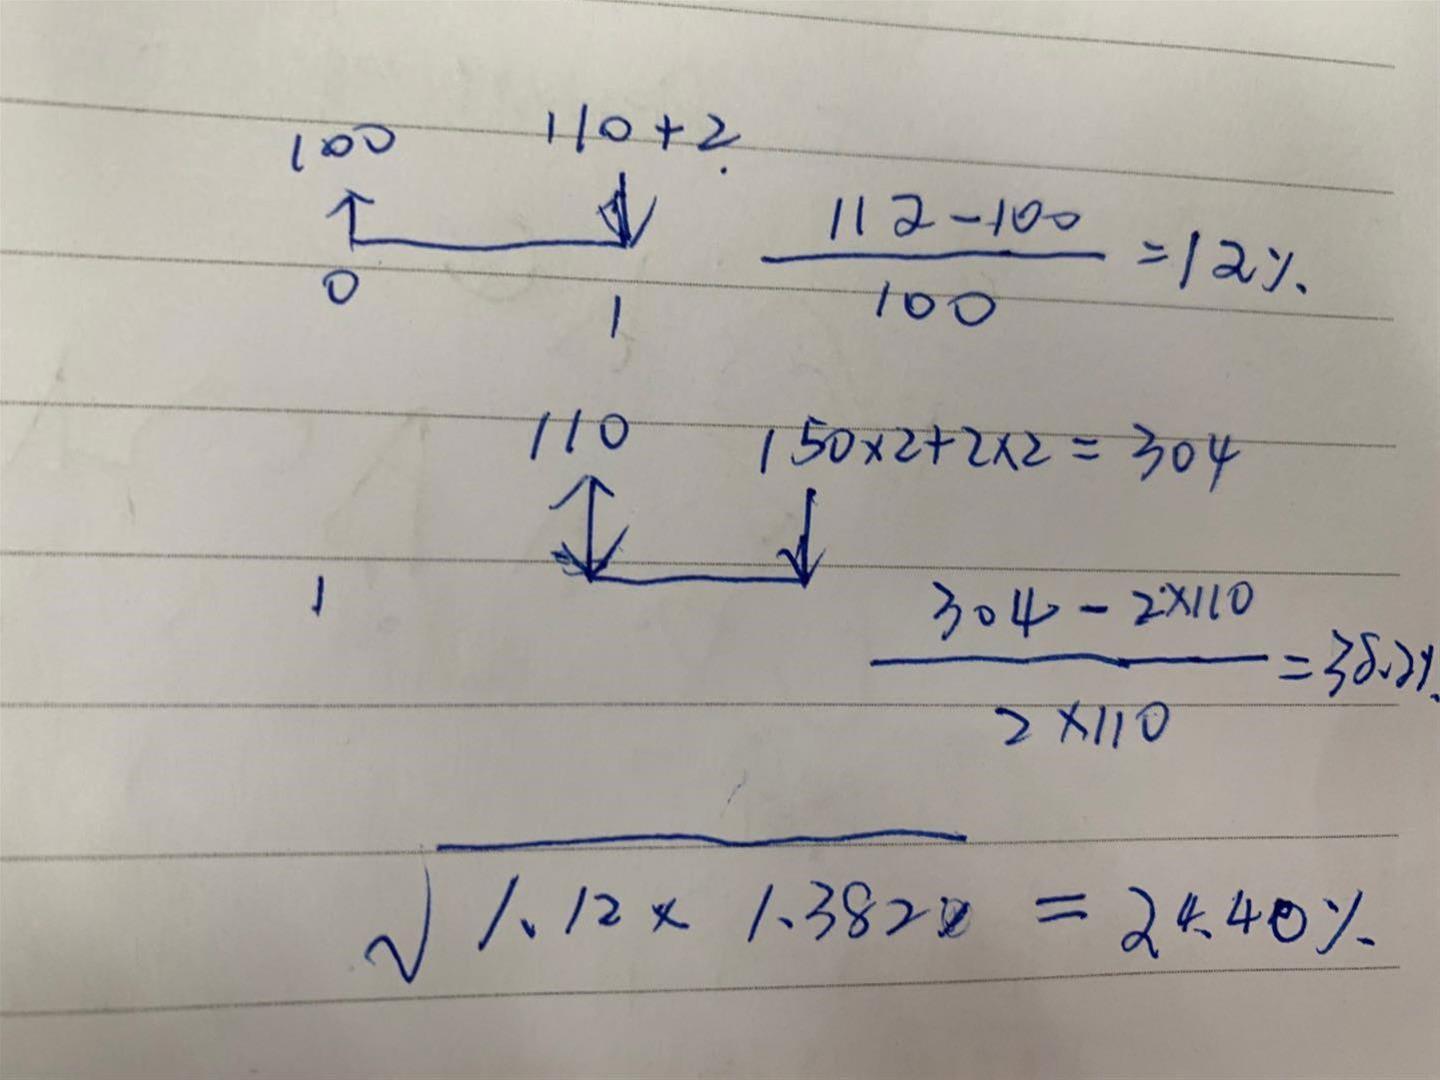 100 110+2
112-100
=12%
100
0
1
110 150×2+2×2=304
1
304-2×110
=38.2%
2×110
√1.12×1.382 = 24.40%